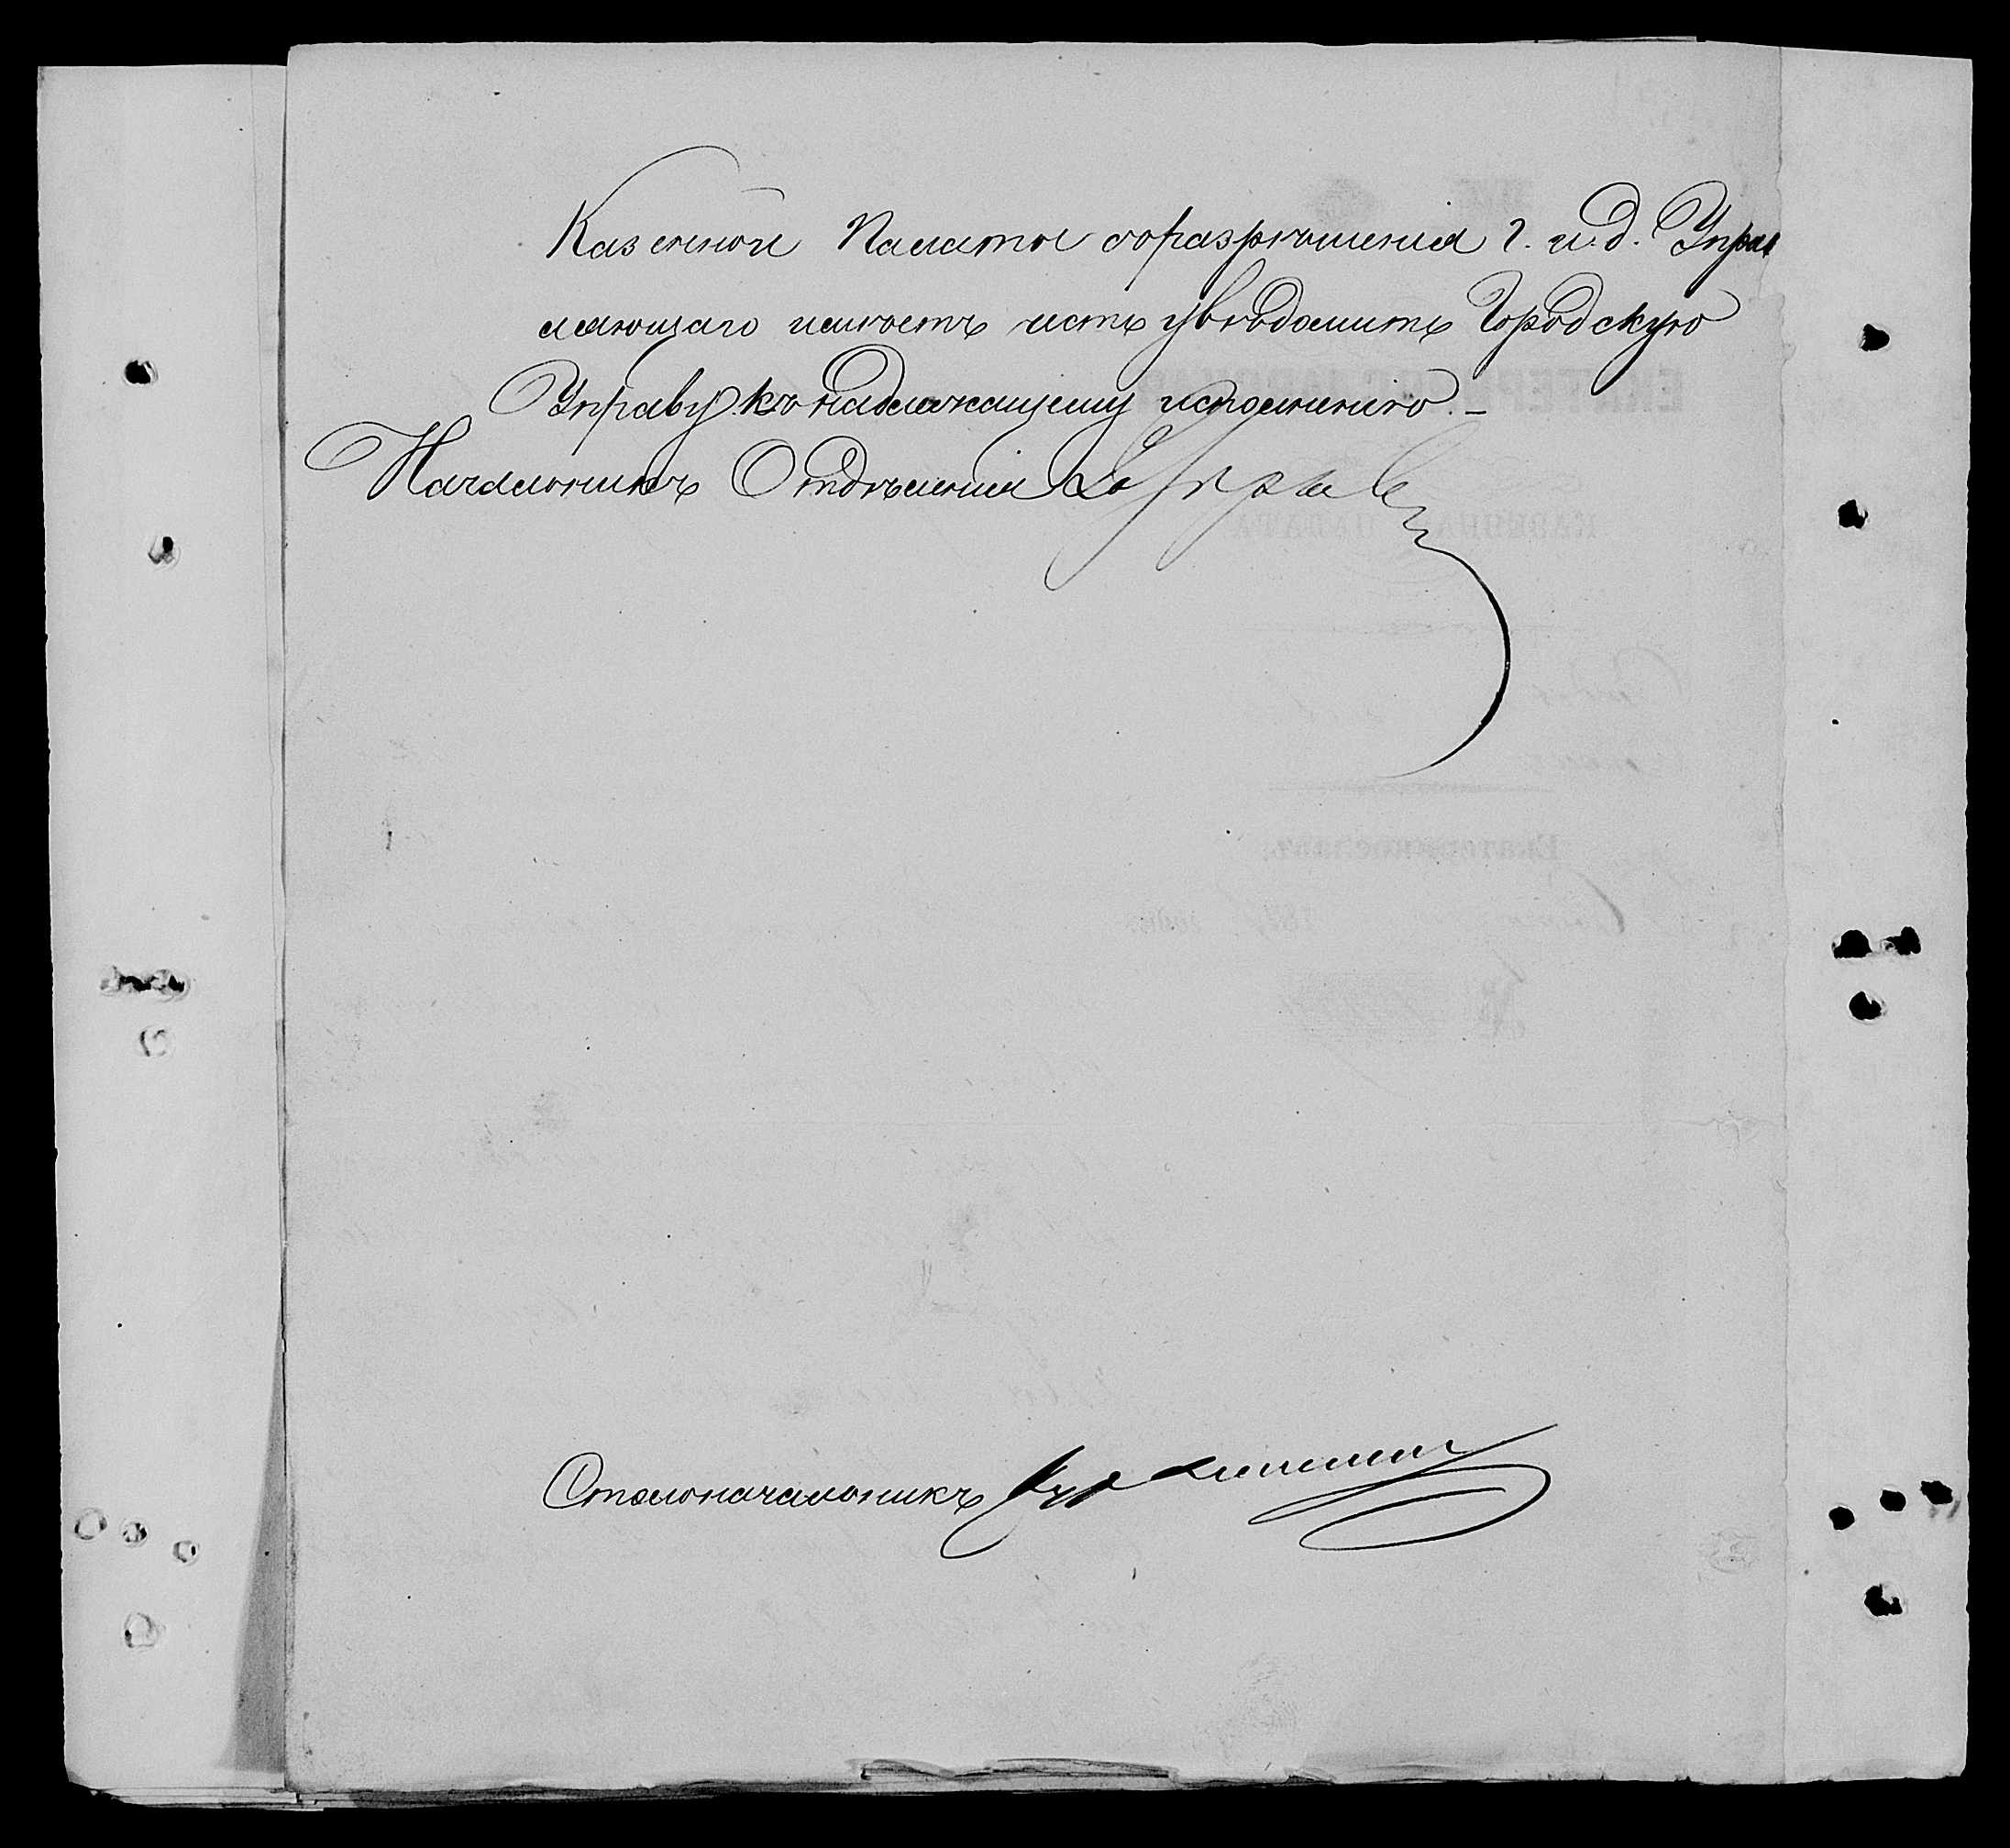 Казенной Палаты съ разрѣшенія г. и. д. Управ
ляющаго имѣетъ честь увѣдомить Городскую
Управу къ надлежащему исполненію. –
Начальникъ Отдѣленія
Столоначальникъ